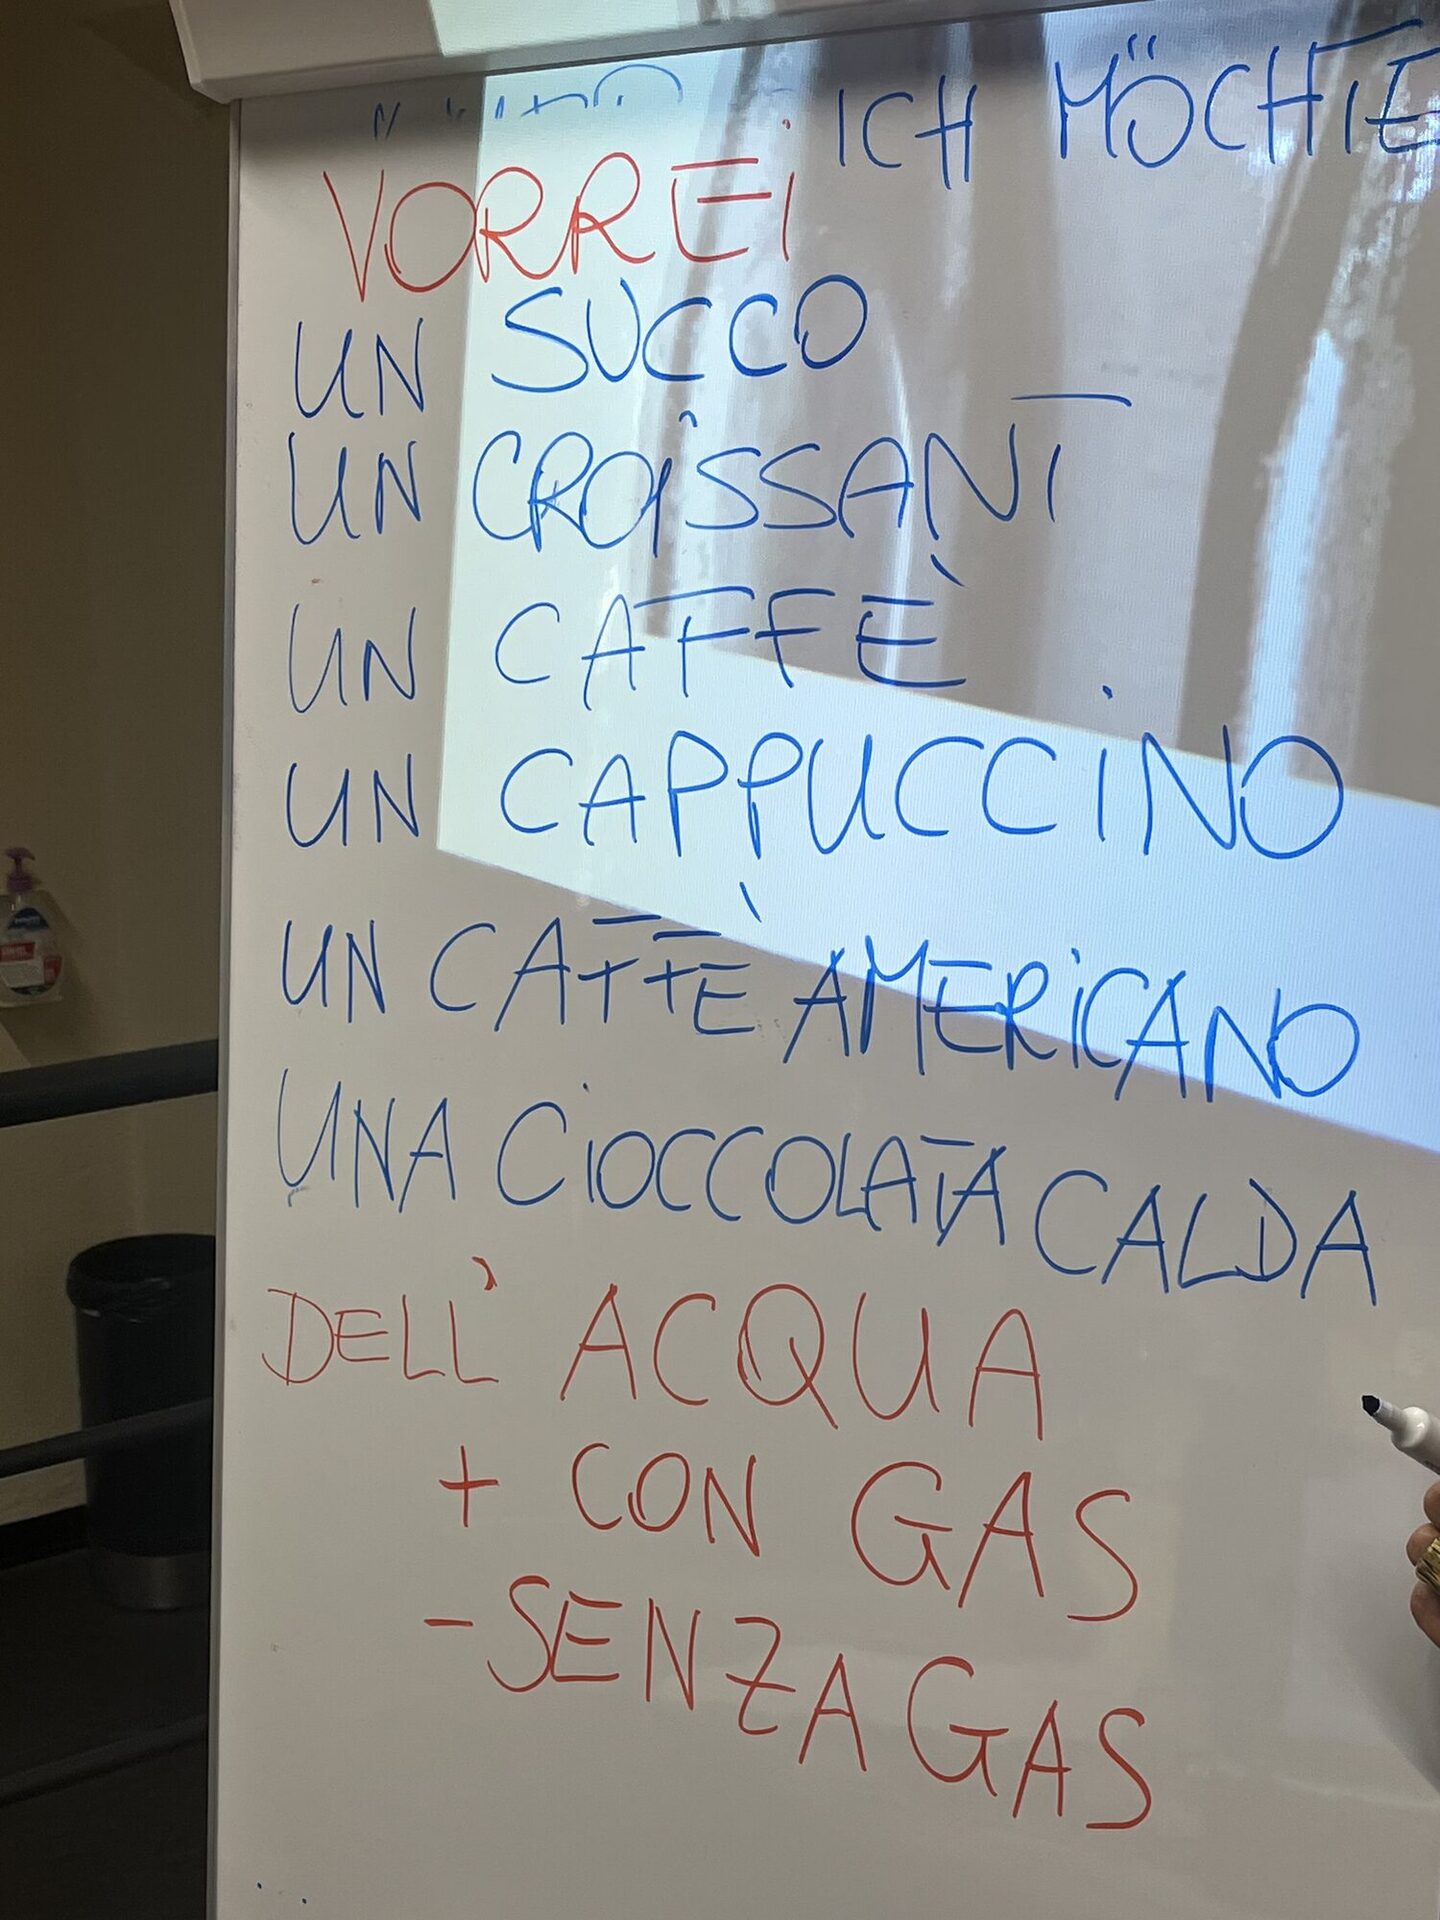 ICH MÖCHTE
VORREI
UN SUCCO
UN CROISSANT
UN CAFFÈ
UN CAPPUCCINO
UN CAFFÈ AMERICANO
UNA CIOCCOLATA CALDA
DELL' ACQUA
+ CON GAS
- SENZA GAS